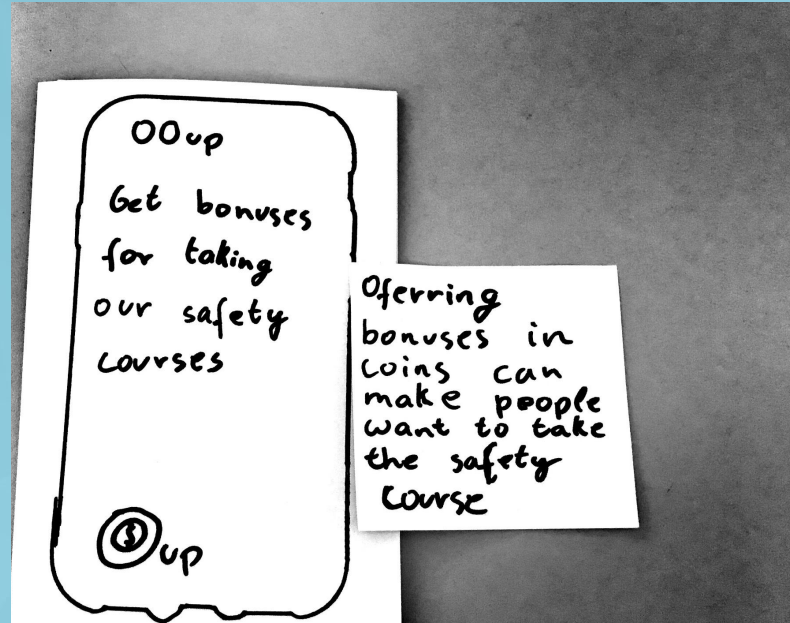 OOup
Get bonuses
for taking
our safety
courses
up
Oferring
bonuses in
coins can
make people
want to take
the safety
course